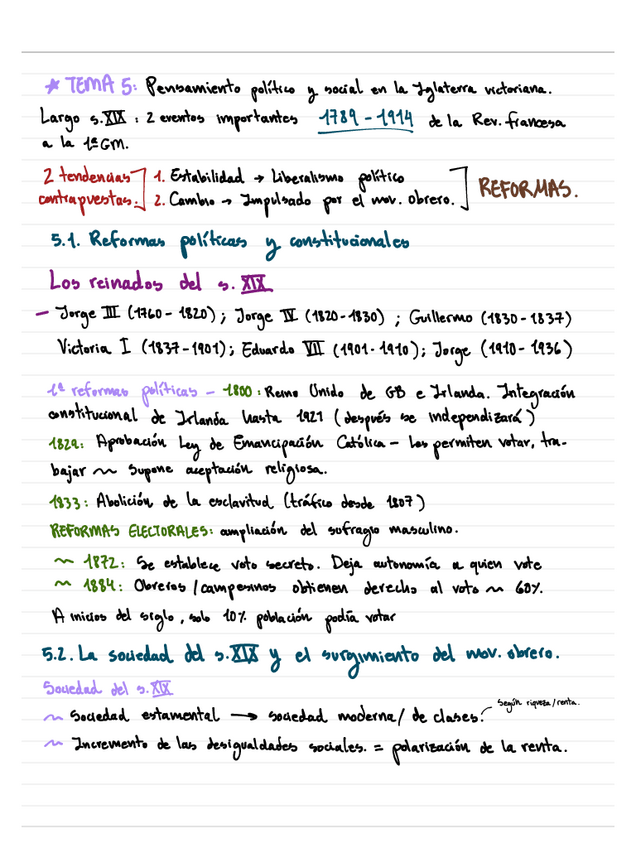 * TEMA 5: Pensamiento político y social en la Inglaterra victoriana.
Largo s.XIX : 2 eventos importantes 1789 - 1914 de la Rev. francesa
a la 1ªGM.
2 tendencias contrapuestas.
1. Estabilidad → Liberalismo político
2. Cambio → Impulsado por el mov. obrero.
REFORMAS.
5.1. Reformas políticas y constitucionales
Los reinados del s. XIX
- Jorge III (1760 - 1820) ; Jorge IV (1820-1830) ; Guillermo (1830-1837)
Victoria I (1837-1901); Eduardo VII (1901-1910); Jorge (1910-1936)
1ª reformas políticas - 1800 : Reino Unido de GB e Irlanda. Integración
constitucional de Irlanda hasta 1921 (después se independizará)
1829: Aprobación Ley de Emancipación Católica - Les permiten votar, tra-
bajar ~ Supone aceptación religiosa.
1833: Abolición de la esclavitud (tráfico desde 1807)
REFORMAS ELECTORALES: ampliación del sufragio masculino.
~ 1872: Se establece voto secreto. Deja autonomía a quien vote
~ 1884: Obreros / campesinos obtienen derecho al voto ~ 60%.
A inicios del siglo, solo 10% población podía votar
5.2. La sociedad del s.XIX y el surgimiento del mov. obrero.
Sociedad del s.XIX
~ Sociedad estamental → sociedad moderna/ de clases. según riqueza/renta.
~ Incremento de las desigualdades sociales. = polarización de la renta.